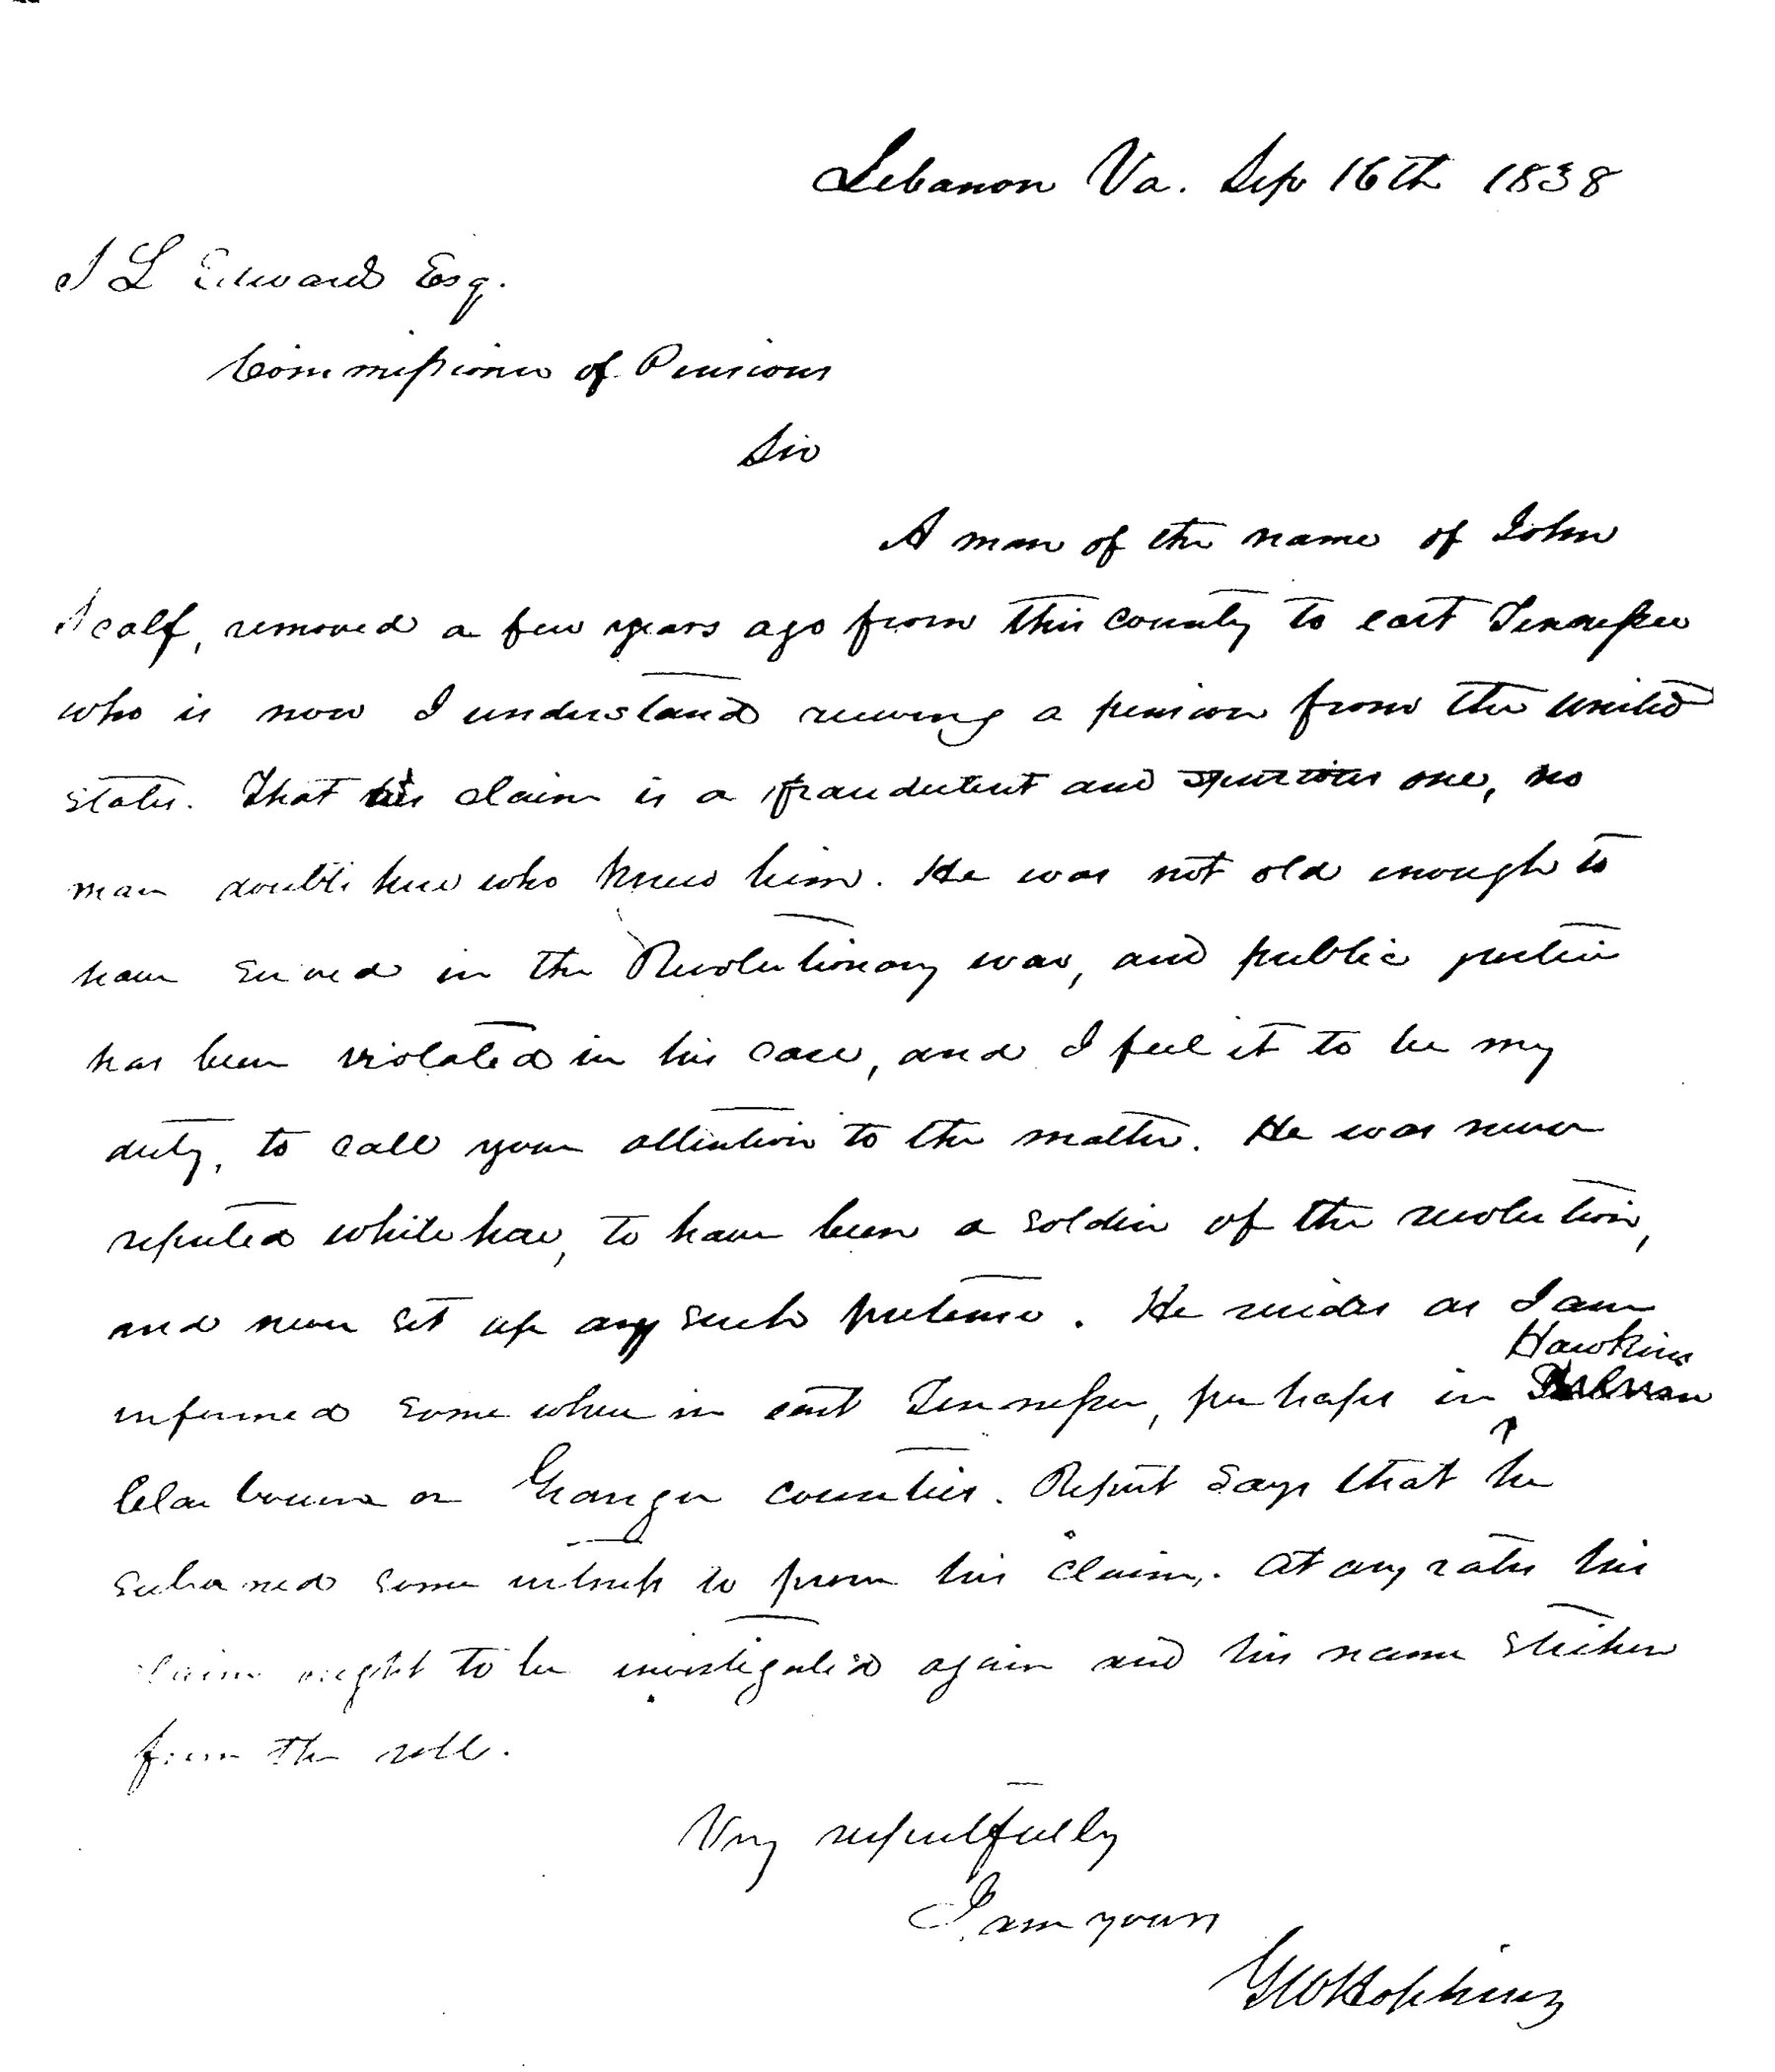 Lebanon Va. Sep 16th 1838
J L Edwards Esq.
Commissioner of Pensions
Sir
A man of the name of John
Scalf, removed a few years ago from this county to east Tennessee
who is now I understand receiving a pension from the United
States. That his claim is a fraudulent and spurious one, no
man doubts here who knew him. He was not old enough to
have served in the Revolutionary war, and public justice
has been violated in his case, and I feel it to be my
duty, to call your attention to the matter. He was never
reputed while here, to have been a soldier of the revolution,
and never set up any such pretense. He resides as I am
Hawkins
informed some where in east Tennessee, perhaps in
Claibourne or Granger counties. Report says that he
suborned some witness to prove his claim. At any rate his
claim ought to be investigated again and his name stricken
from the roll.
Very respectfully
I am yours
GW Hopkins